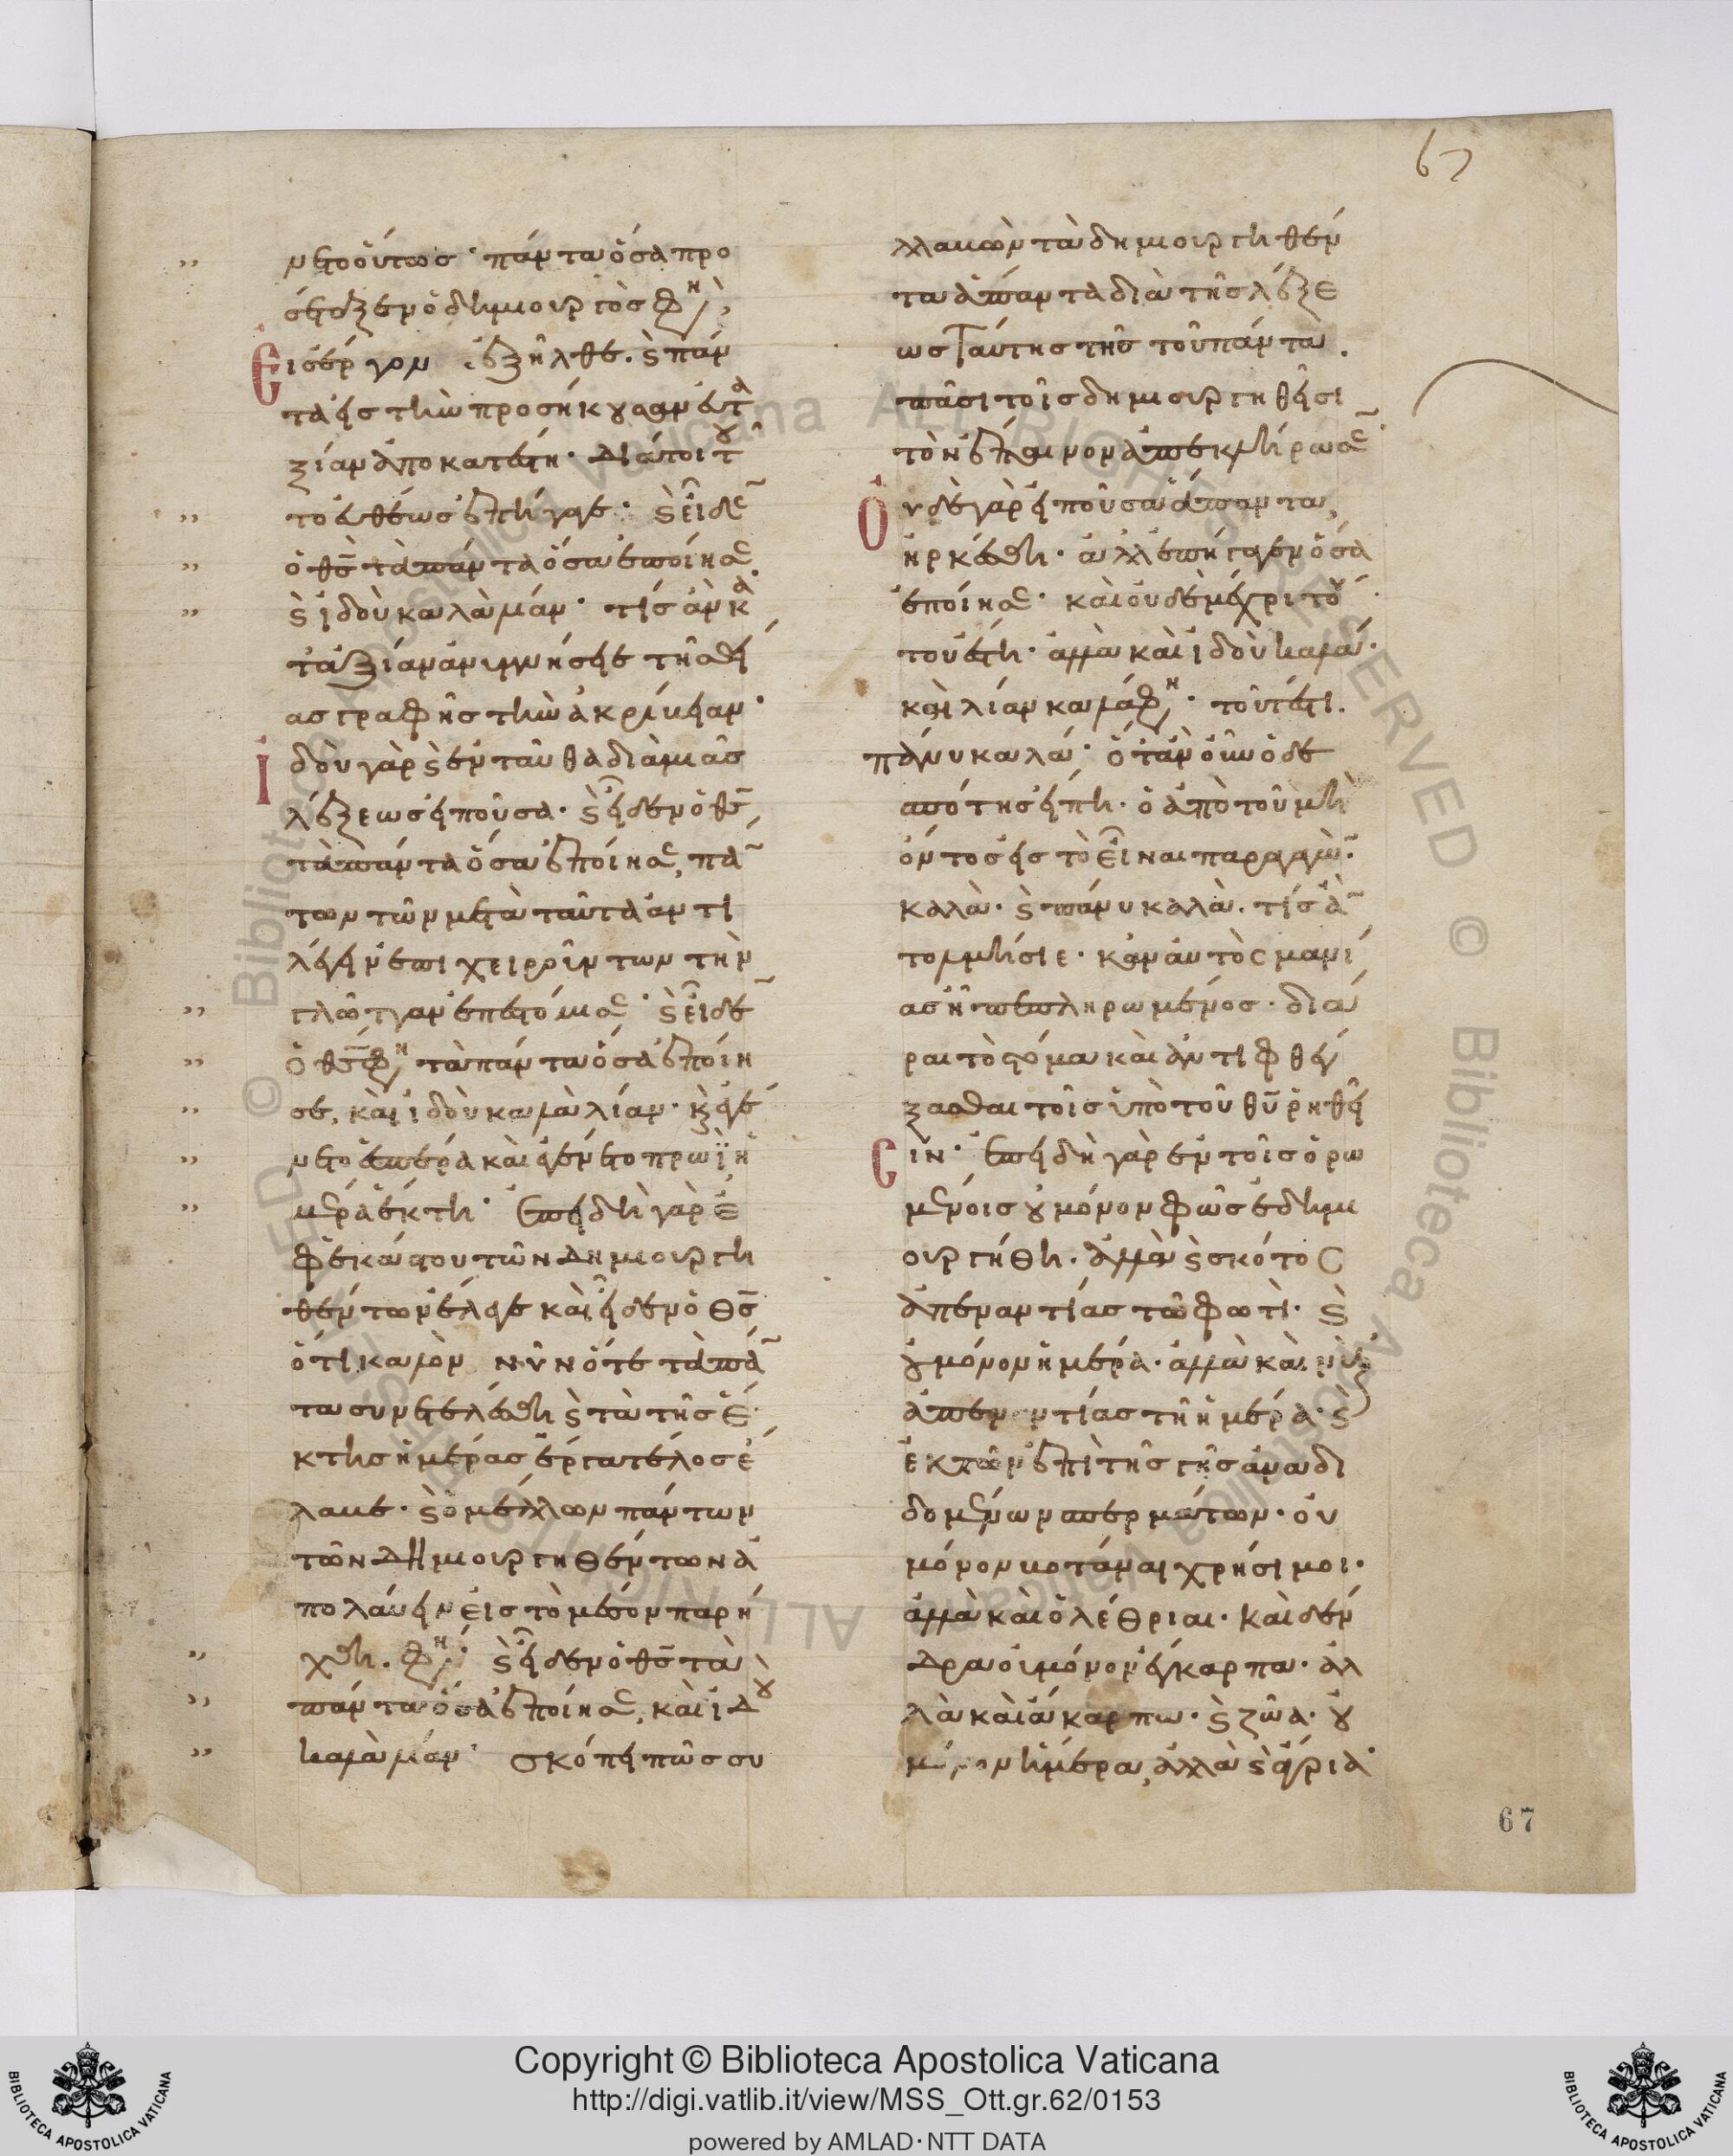 67
νετο οὕτως· πάντα ὅσα προ
σέταξεν ὁ δημιουργὸς φη(),
εἰς ἔργον ἐξῆλθε. ϛ πάν
τα εἰς τὴν προσήκουσαν εὐτα
ξίαν ἀποκατέστη· διάτοι τοῦ
το εὐθέως ἐπήγαγε· ϛ εἶδε
ὁ θς τὰ πάντα ὅσα ἐποίησε
ϛ ἰδοὺ καλὰ λίαν· τίς ἂν κα
τ ἀξίαν ἀνυμνήσειε τῆς θεί
ας γραφῆς τὴν ἀκρίβειαν·
ἰδοὺ γὰρ ϛ ἐνταῦθα διὰ μιᾶς
λέξεως εἰποῦσα· ϛ εἶδεν ὁ θς,
τὰ πάντα ὅσα ἐποίησε, πά
των τῶν μετὰ ταῦτα ἀντι
λέγειν ἐπιχειρούντων τὴν
γλῶτταν ἐπεστόμισε· ϛ εἶδε
ὁ θς φη() τὰ πάντα ὅσα ἐποίη
σε, καὶ ἰδοὺ καλὰ λίαν· κ ἐγέ
νετο ἑσπέρα καὶ ἐγένετο πρωῒ ἡ
μέρα ἕκτη· ἐπειδὴ γὰρ ἐ
φ ἑκάστου τῶν δημιουργη
θέντων ἔλεγε καὶ εἶδεν ὁ θς
ὅτι καλὸν νῦν ὅτε τὰ πά
τα συνετελέσθη ϛ τὰ τῆς ἕ
κτης ἡμέρας ἔργα τέλος ἔ
λαβε· ϛ ὁ μέλλων πάντων
τῶν δημιουργηθέντων ἀ
πολαύειν εἰς τὸ μέσον παρή
χθη. φη()· ϛ εἶδεν ὁ θς τὰ
πάντα ὅσα ἐποίησε, καὶ ἰδου
καλὰ λίαν· σκόπει πῶς συ
λλαβὼν τὰ δημιουργηθέν
τα ἅπαντα διὰ τῆς λέξε
ως ταύτης τῆς τοῦ πάντα.
πᾶσι τοῖς δημιουργηθεῖσι
τὸν ἔπαινον ἀπεκλήρωσε
οὐδὲ γὰρ εἰποῦσα ἅπαντα,
ἠρκέσθη· ἀλλ ἐπήγαγεν ὅσα
ἐποίησε· καὶ οὐδὲ μέχρι του
του ἔστη· ἀλλὰ καὶ ἰδοὺ καλά·
καὶ λίαν καλά φη()· τουτέστι.
πάνυ καλά· ὅταν οὖν ὁ δε
σπότης εἴπῃ· ὁ ἀπὸ τοῦ μὴ
ὄντος εἰς τὸ εἶναι παραγαγὼ·
καλὰ· ϛ πάνυ καλὰ. τίς ἂ
τολμήσιε· κἂν αὐτὸς μανί
ας ἦ πεπληρωμένος· διᾶ
ραι τὸ στόμα καὶ ἀντιφθέγ
ξασθαι τοῖς ὑπὸ τοῦ θυ ῥηθεῖ
σιν· ἐπειδὴ γὰρ ἐν τοῖς ὁρω
μένοις οὐ μόνον φῶς ἐδημι
ουργήθη. ἀλλὰ ϛ σκότος
ἀπεναντίας τῶ φωτὶ· ϛ
οὐ μόνον ἡμέρα· ἀλλὰ καὶ νὺξ
ἀπεναντίας τῇ ἡμέρα· ϛ
ἐκ τῶν ἐπὶ τῆς γῆς ἀναδι
δομένων σπερμάτων· οὐ
μόνον βοτάναι χρήσιμοι·
ἀλλὰ καὶ ὀλέθριαι· καὶ δέν
δρα οὐ μόνον εὔκαρπα· ἀλ
λὰ καὶ ἄκαρπα· ϛ ζῶα· οὐ
μόνον ἥμερα, ἀλλὰ ϛ ἄγρια·
67
Copyright © Biblioteca Apostolica Vaticana
http://digi.vatlib.it/view/MSS_Ott.gr.62/0153
powered by AMLAD·NTT DATA